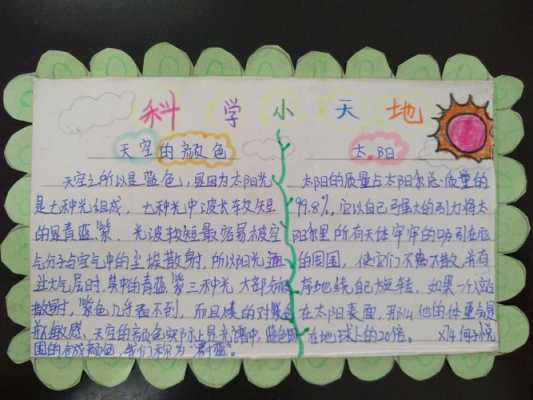 科学小天地
天空的颜色
天空之所以是蓝色,是因为太阳光
是七种光组成,七种光中波长较短
的是青蓝紫,光波较短最容易被空
气分子与空气中的尘埃散射,所以阳光通
过大气层时,其中的青蓝紫三种光大部分被
散射,紫色几乎看不到,而且人的对紫色
敏感,天空的颜色实际上是光谱中蓝色
围的合成颜色,我们称为"天蓝"。
太阳
太阳的质量占太阳系总质量的
99.8%,它以自己强大的引力将太
阳系里所有天体牢牢的吸引在
的周围,使它们不离不散,井有
有序地绕自己旋转,如果一个人
在太阳表面,那么他的体重会是
在地球上的20倍。